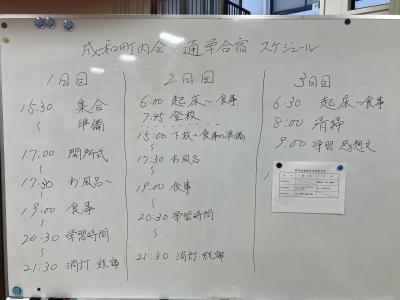 成和町内会 通学合宿 スケジュール
1日目
15:30 集合
〜 準備
17:00 開所式
〜
17:30 お風呂〜
〜
19:00 食事
〜
20:30 学習時間
〜
21:30 消灯・就寝
2日目
6:00 起床〜食事
7:45 登校
15:00 下校→食事の準備
〜
17:30 お風呂
〜
19:00 食事
〜
20:30 学習時間
〜
21:30 消灯・就寝
3日目
6:30 起床〜食事
8:00 清掃
9:00 学習 感想文